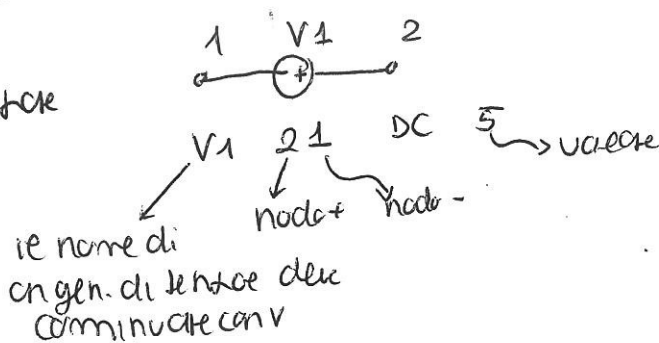 1 V1 2
+
V1 2 1 DC 5 → valore
nodo+ nodo -
il nome di
un gen. di tensione deve
cominciare con V